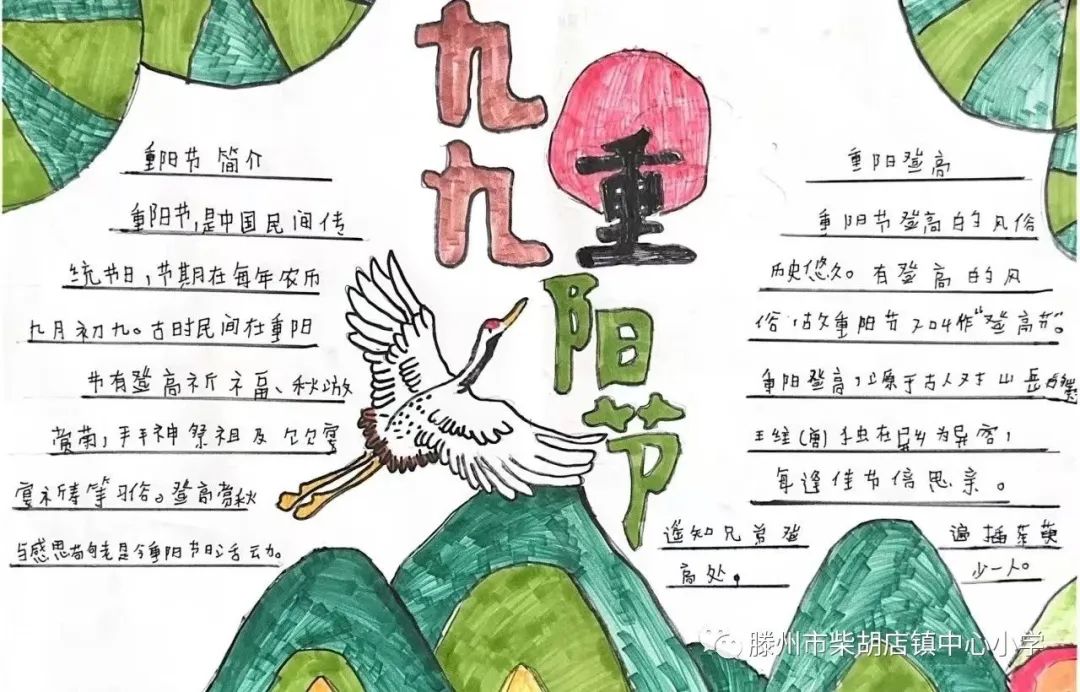 九九
重阳节
重阳节简介
重阳节,是中国民间传
统节日,节期在每年农历
九月初九。古时民间在重阳
节有登高祈福、秋游
赏菊,神祭祖及宴
宴祈寿等习俗。登高赏秋
与感恩是今重阳节日活动。
重阳登高
重阳节登高的风俗
历史悠久。有登高的风
俗,故重阳节又叫作“登高节”。
重阳登高,源于古人对山岳
王维(唐)独在异乡为异客,
每逢佳节倍思亲。
遥知兄弟登
高处,
遍插茱萸
少一人。
滕州市柴胡店镇中心小学